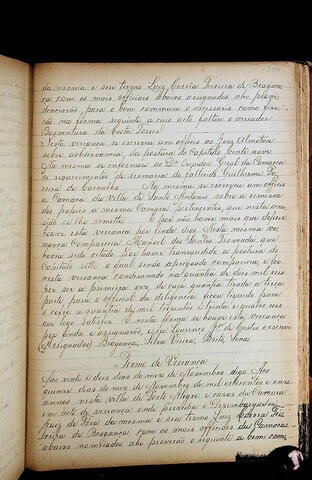 da mesma e seu termo Luiz Corrêa Teixeira de Bragan-
ça com os mais officiais abaixo assignados ahi prov
denciarão para o bem commum o necessario como fize-
rão na forma seguinte a cujo acto faltou o vereador
Boaventura da Costa Torres
Nesta vereança se escreveu um officio ao Juiz Almotacé
sobre a observancia da postura de Capitulo vinte nove
Na mesma se informou ao Dr. Ouvidor Geral da Comarca
os requerimentos de sesmaria do fallecido Guilherme
de Carvalho Na mesma se escreveu um officio
a Camara da Villa de Santo Antonio sobre a remessa
dos papeis a mesma Camara pertencentes, que nesta occa-
sião se lhe remette E por não haver mais que deferir
houve esta vereança por finda digo Nesta mesma ve-
reança Compareceu Manoel dos Santos que
havia sido citado por haver transgredido a postura do
Capitulo sette, o qual sendo apregoado compareceu, e foi
nesta vereança Condemnado na quantia de dous mil reis
por ser a primeira vez, de cuja quantia tirada a terça
parte para o official da diligencia ficou liquido para
o cofre a quantia de mil trezentos e trinta e quatro reis
que logo satisfez E nesta forma se houve esta vereança
por finda e assignarão, e eu Lourenço Jr. de Castro o escrevi
(Assignados) Bragança, Silva Vieira, Brito, Lima
Termo de Vereança
Aos vinte e dois dias do mez de Novembro digo Aos
quinze dias do mez de Novembro de mil oitocentos e onze
annos nesta Villa de Porto Alegre e casas da Camara
em acto de vereança onde presidio o Dezembargador
Juiz de Fóra da mesma e seu termo Luiz Corrêa Tei-
xeira de Bragança com os mais officiaes da Camara
abaixo nomeados ahi proverão o seguinte a bem com